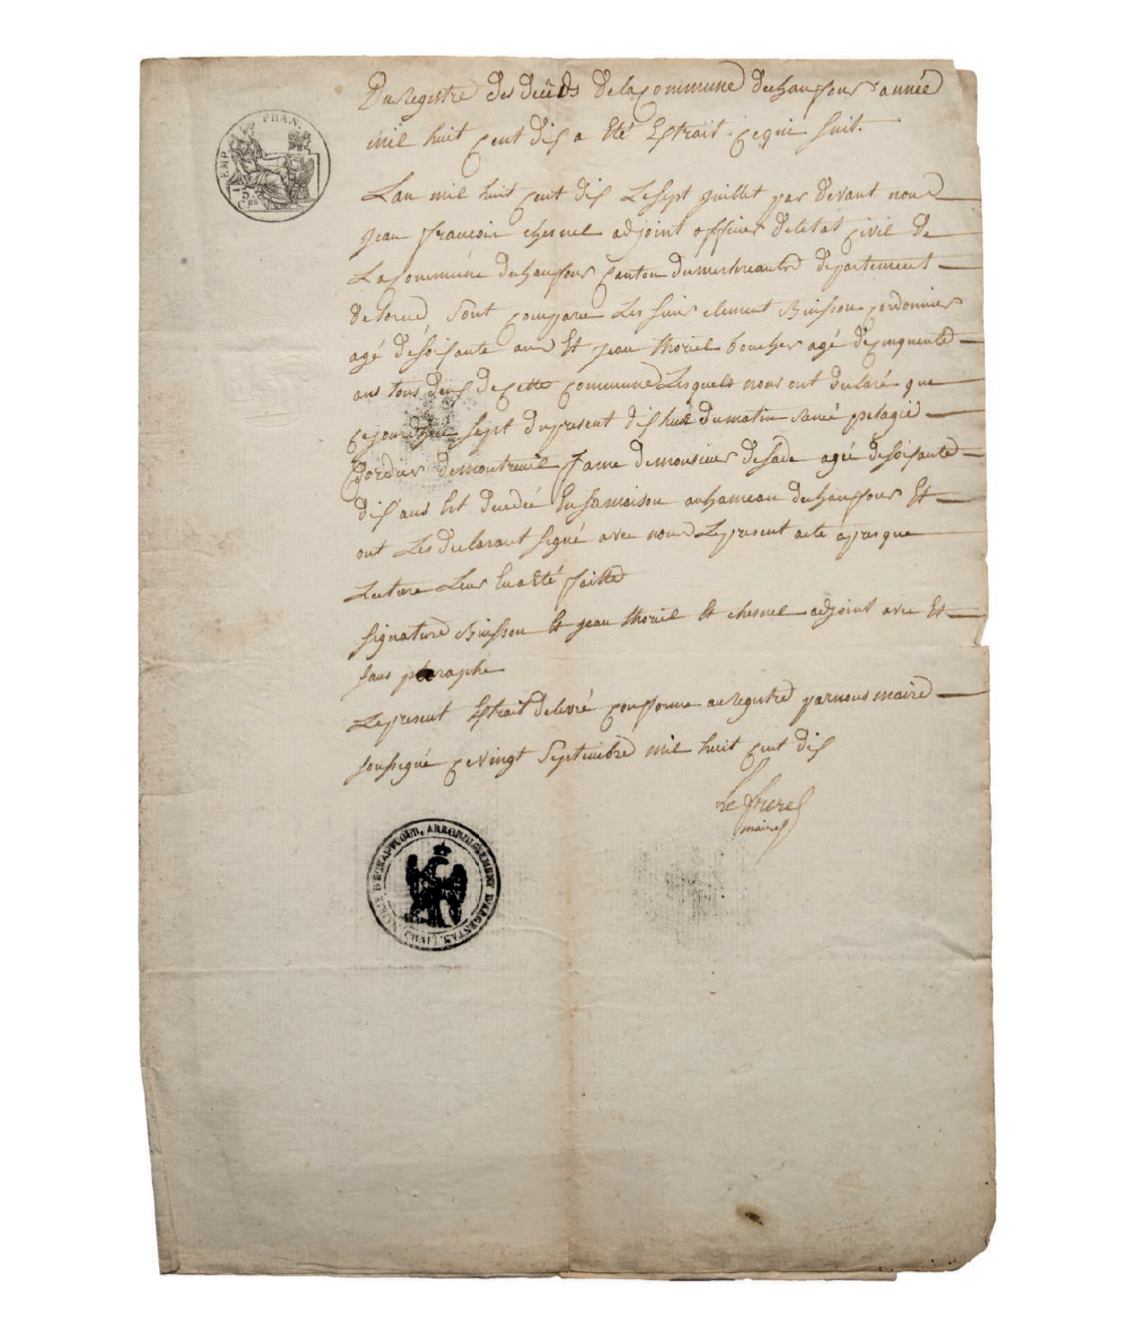 EMP. FRAN.
Du registre des décèds de la Commune dechaufour année
mil huit cent dix a été Extrait ce qui suit.
Lan mil huit cent dix Le sept juillet par devant nous
jean françois chesnel adjoint officier deletat civil de
La commune dechaufour canton dumerlereaultd departement
delorne Sont comparu Les sieurs clement Buisson cordonnier
agé desoixante ans Et jean thoriel boucher agé decinquante
ans tous deux de cette commune Lesquels nous ont declaré que
cejourdhui sept dupresent dix huit dumatin renée pelagie
Cordier demontreuil fame demonsieur desade ageé desoixante
dix ans Est decedeé En samaison auhameau dechaufour Et
ont Les declarant signé avec nous Lepresent acte apres que
Lecture Leur En a Eté faitte
signature Buisson Et jean thoriel Et chesnel adjoint avec Et
sans paraphe
Lepresent Extrait delivré conforme auregistre parnous maire
soussigné ce vingt Septembre mil huit cent dix
maire
MAIRIE D'ECHAUFFOUR, ARRONDISSEMENT D'ARGENTAN. (ORNE)